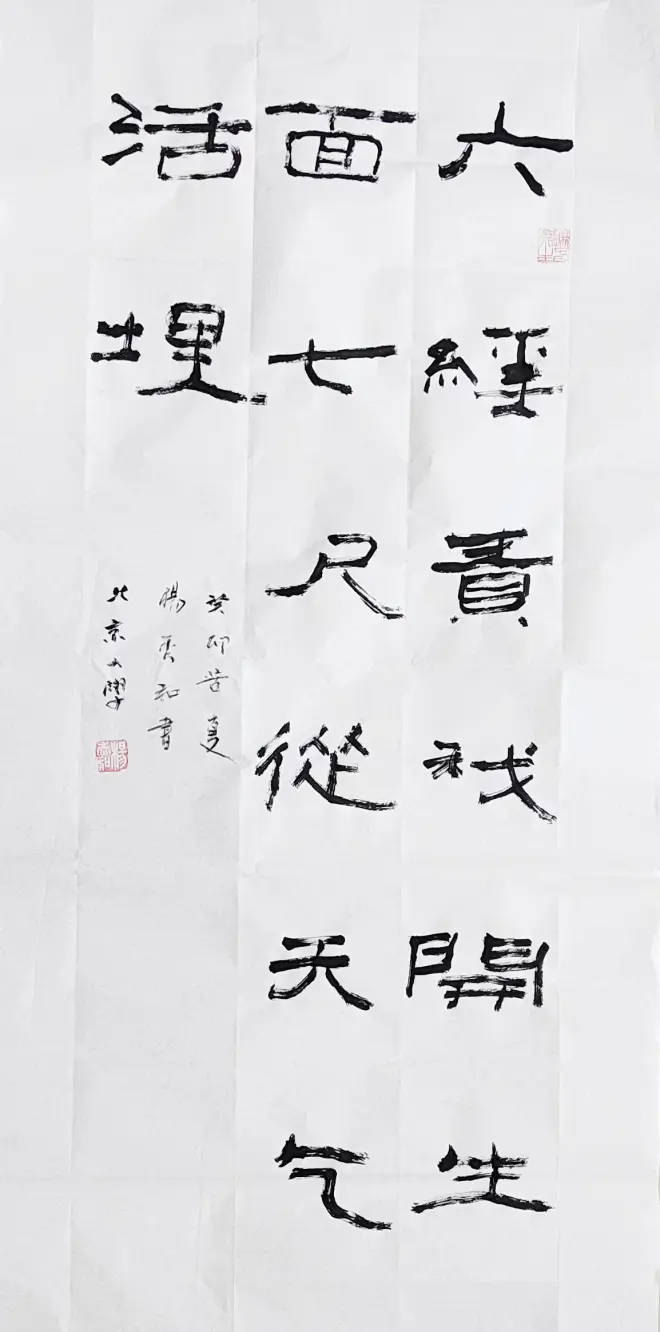 六經責我開生
面七尺從天气
活埋
癸卯苦夏
楊
和書
北京大學